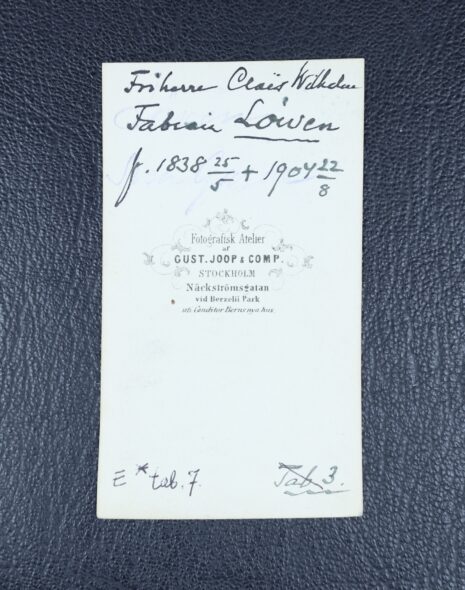 Friherre Claës Wilhelm
Fabian Löwen
f. 1838 25/5 + 1904 22/8
Fotografisk Atelier
af
GUST. JOOP & COMP.
STOCKHOLM
Näckströmsgatan
vid Berzelii Park
uti Conditor Berns nya hus
E * tab. 7.
Tab 3.